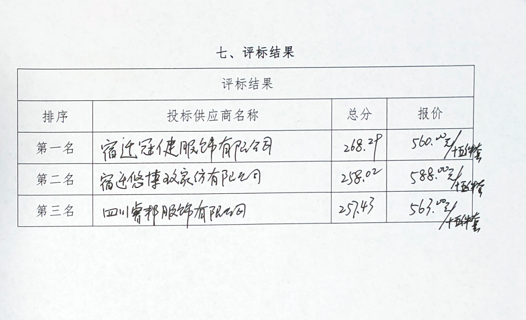 七、评标结果
评标结果
排序 投标供应商名称 总分 报价
第一名 宿迁冠健服饰有限公司 268.29 560.00元/十五件套
第二名 宿迁悠博欧家纺有限公司 258.02 588.00元/十五件套
第三名 四川睿邦服饰有限公司 257.43 563.00元/十五件套